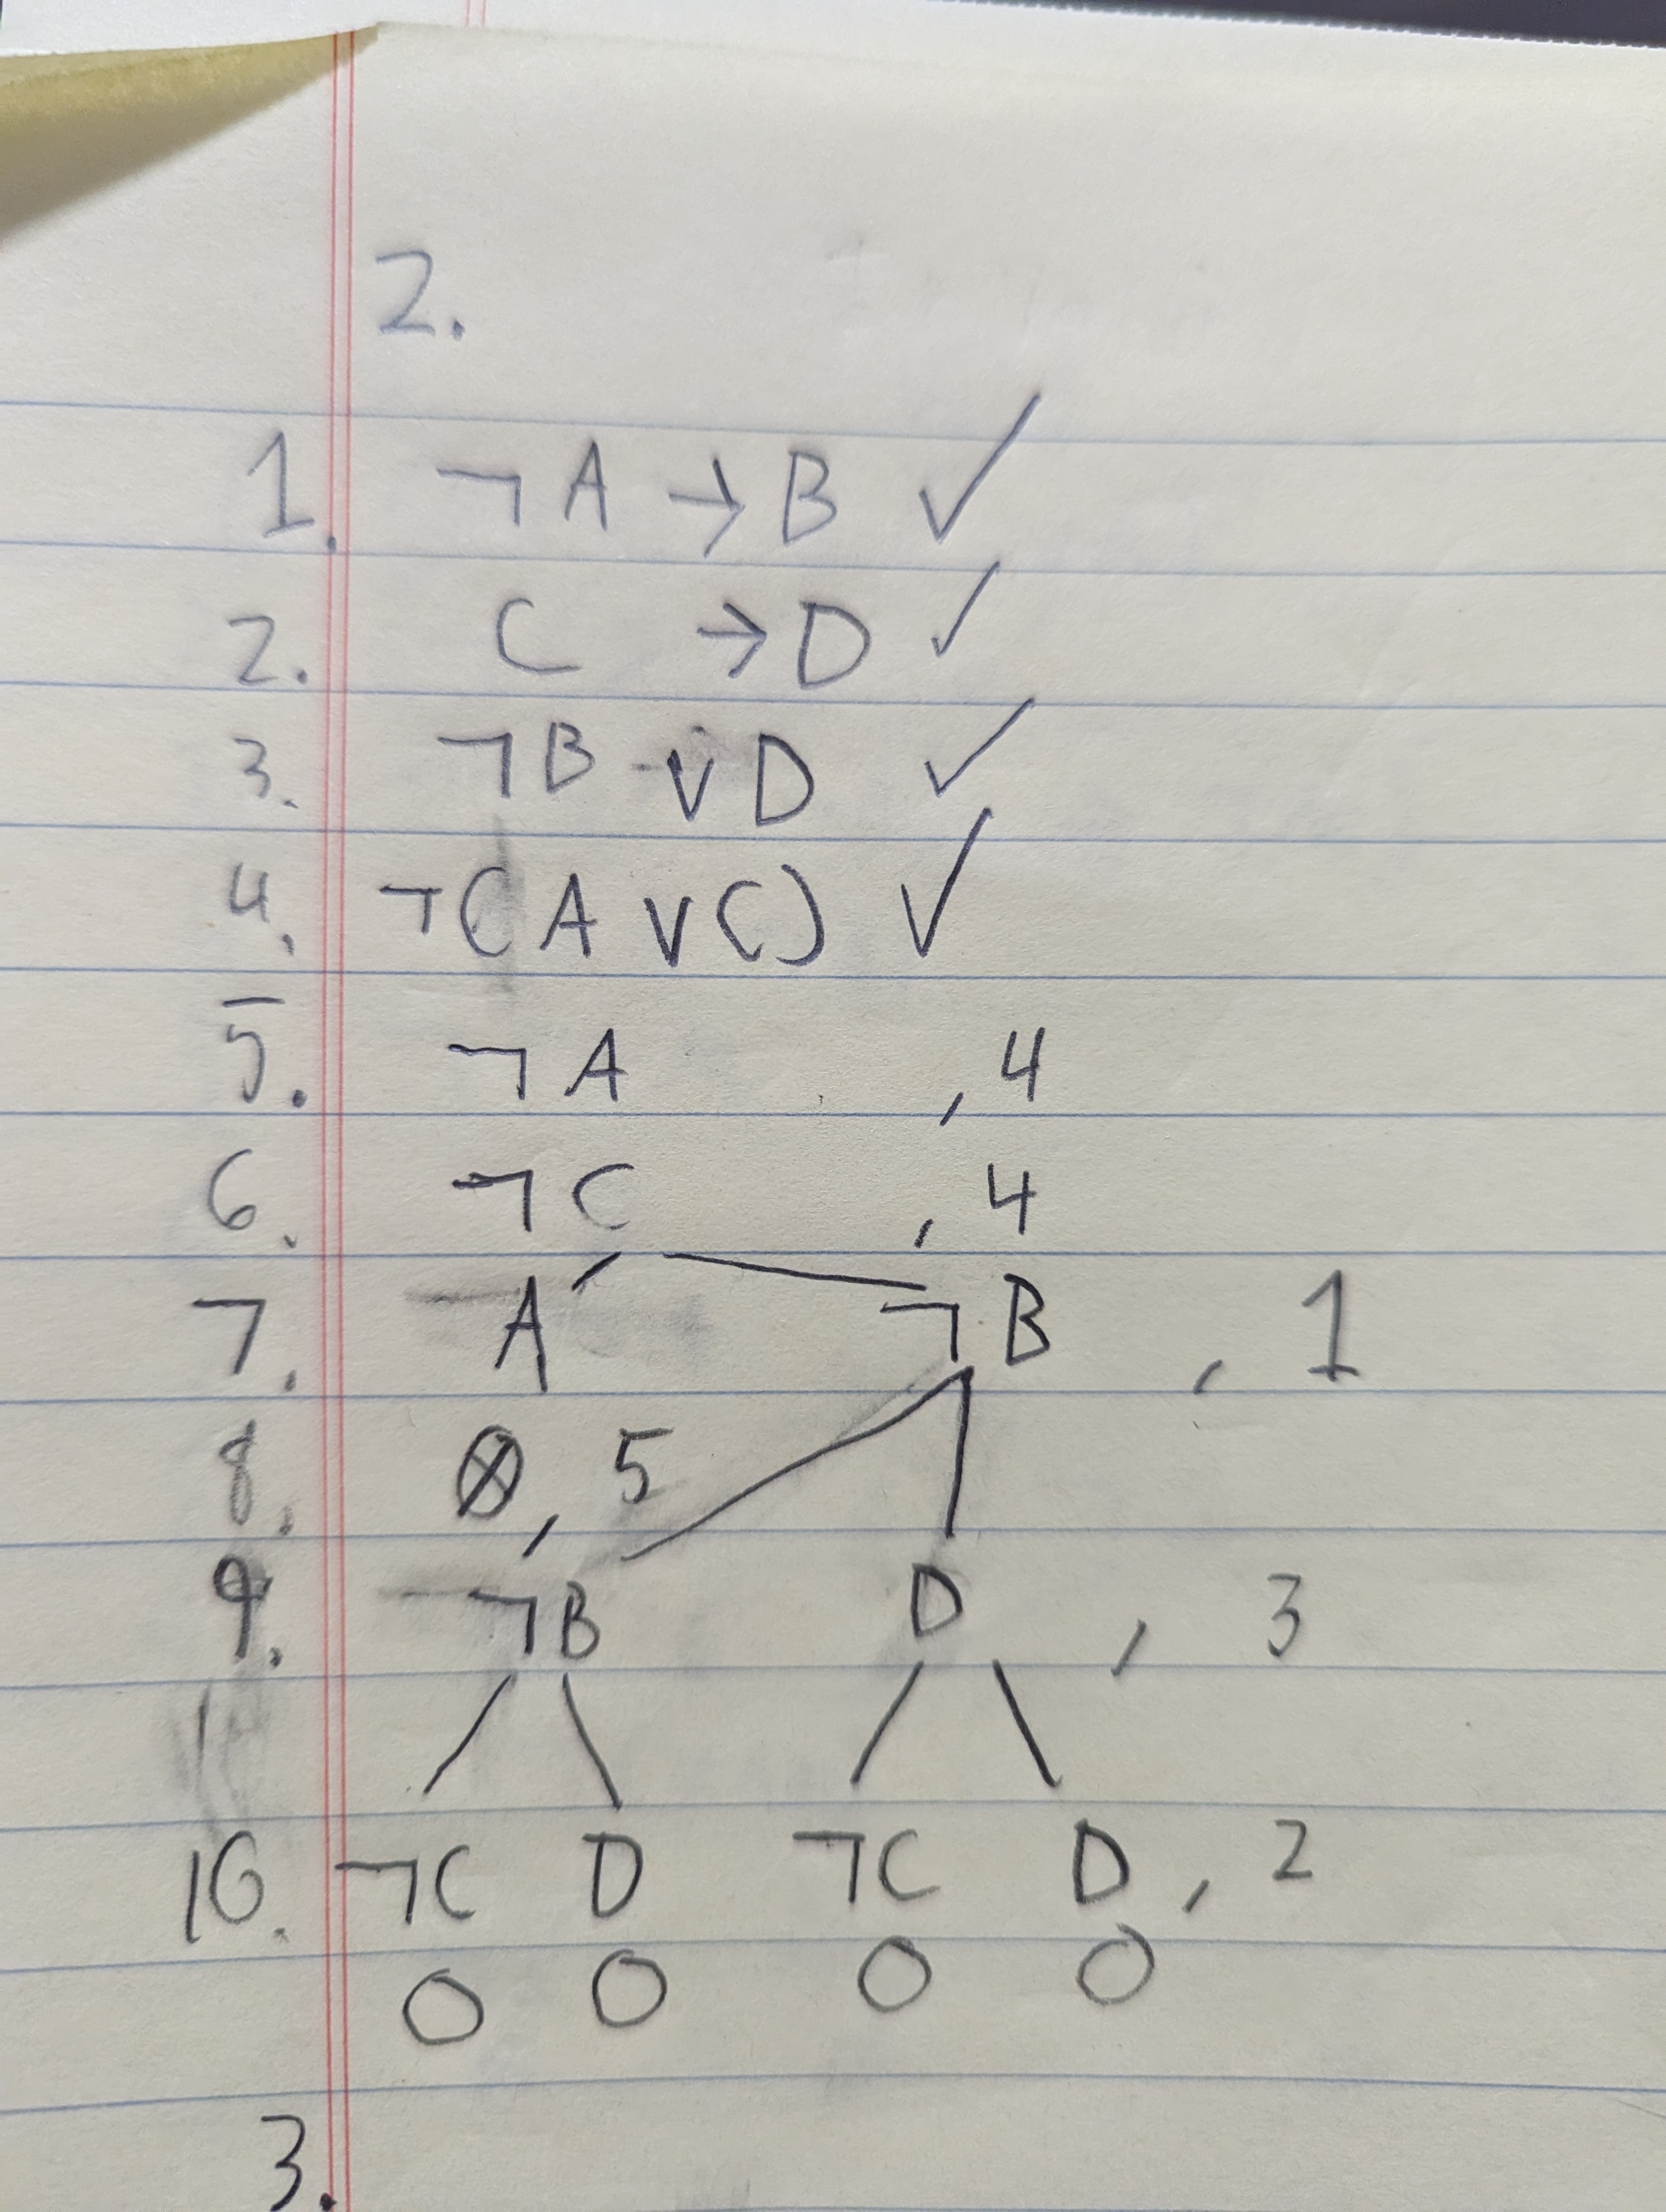 2.
1. ¬A → B ✓
2. C → D ✓
3. ¬B ∨ D ✓
4. ¬(A ∨ C) ✓
5. ¬A , 4
6. ¬C , 4
7. A ¬B , 1
8. ⊗, 5
9. ¬B D , 3
10. ¬C D ¬C D , 2
O O O O
3.